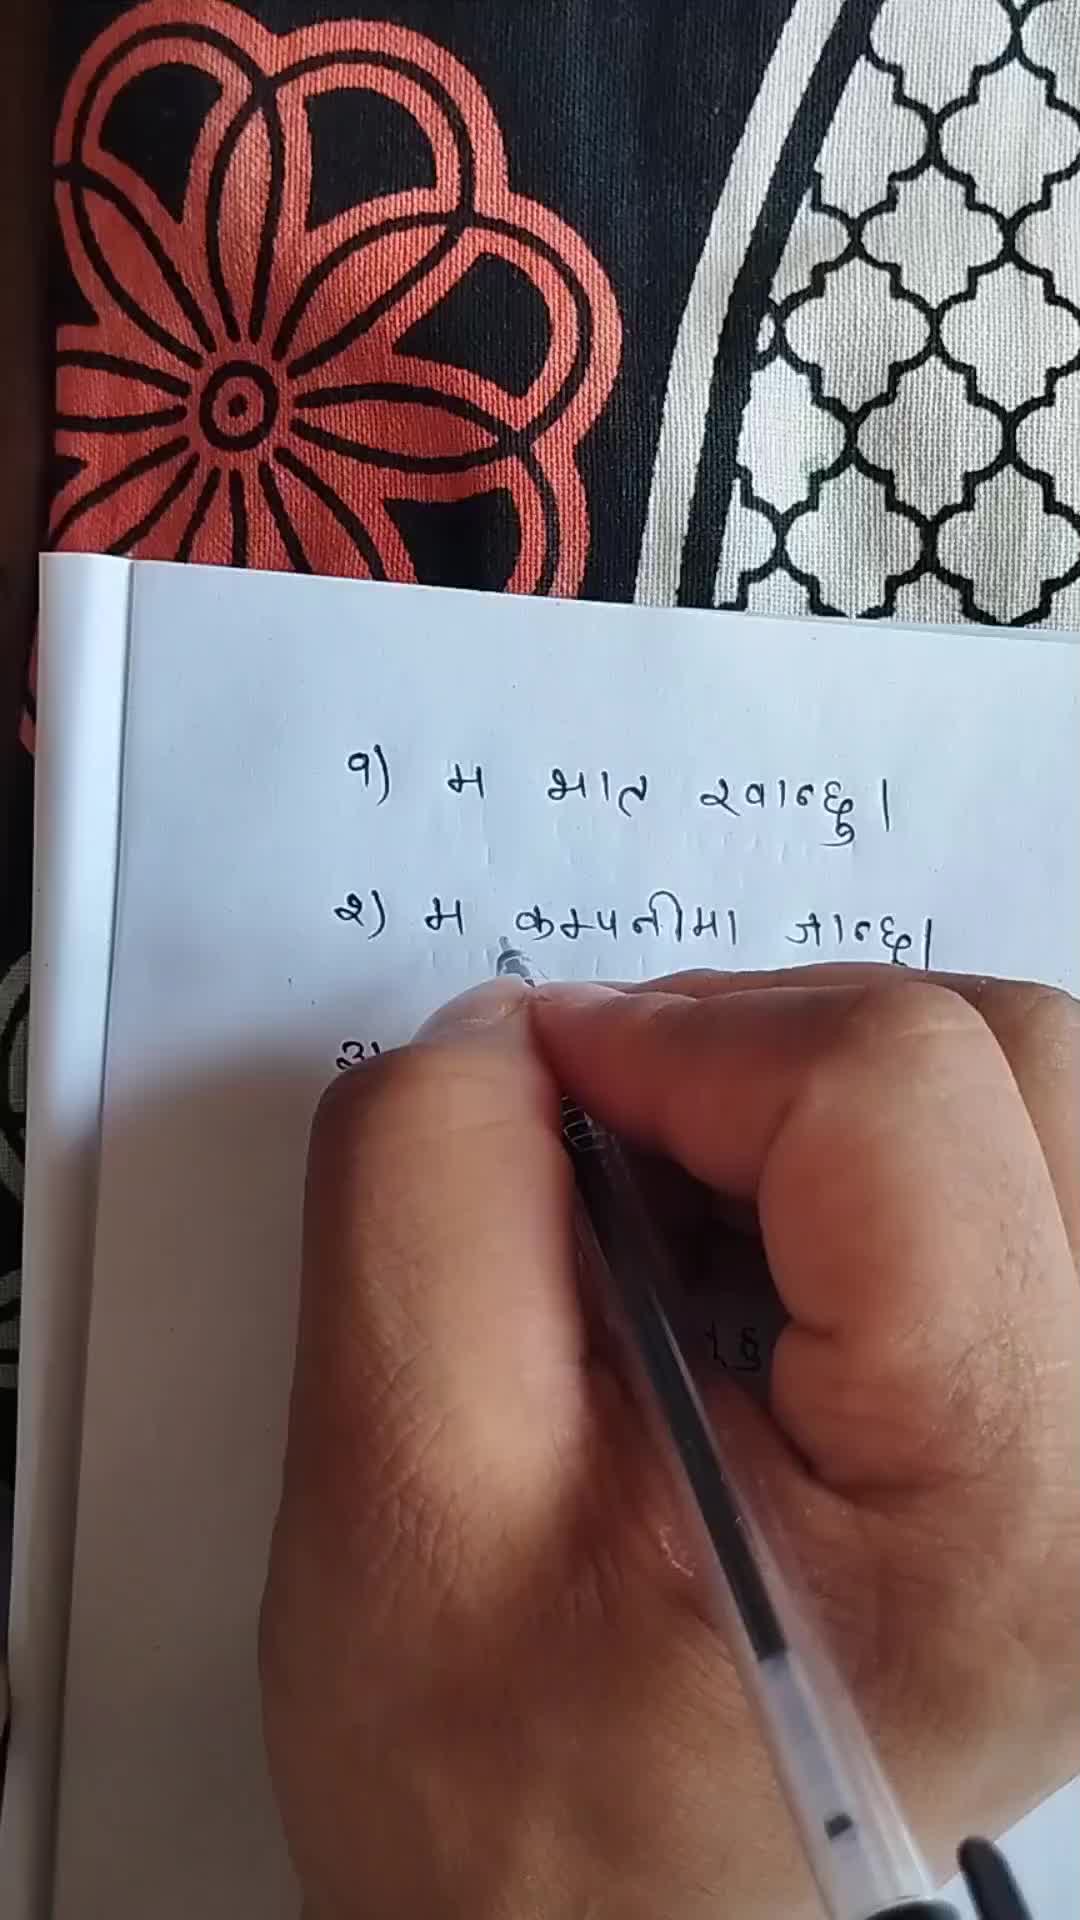 १) म भात खान्छु।
२) म कम्पनीमा जान्छु।
३)